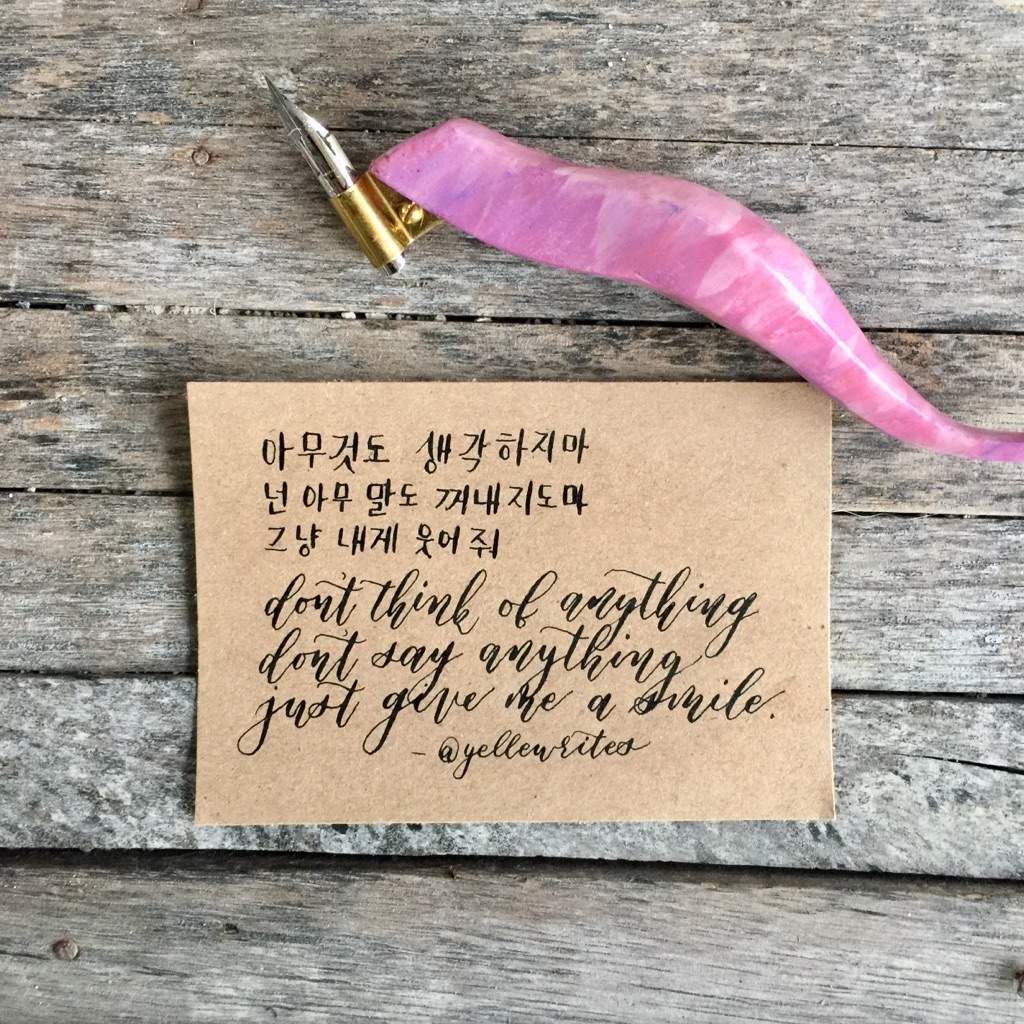 아무것도 생각하지마
넌 아무 말도 꺼내지도마
그냥 내게 웃어줘
don't think of anything
don't say anything
just give me a smile.
- @yellewrites